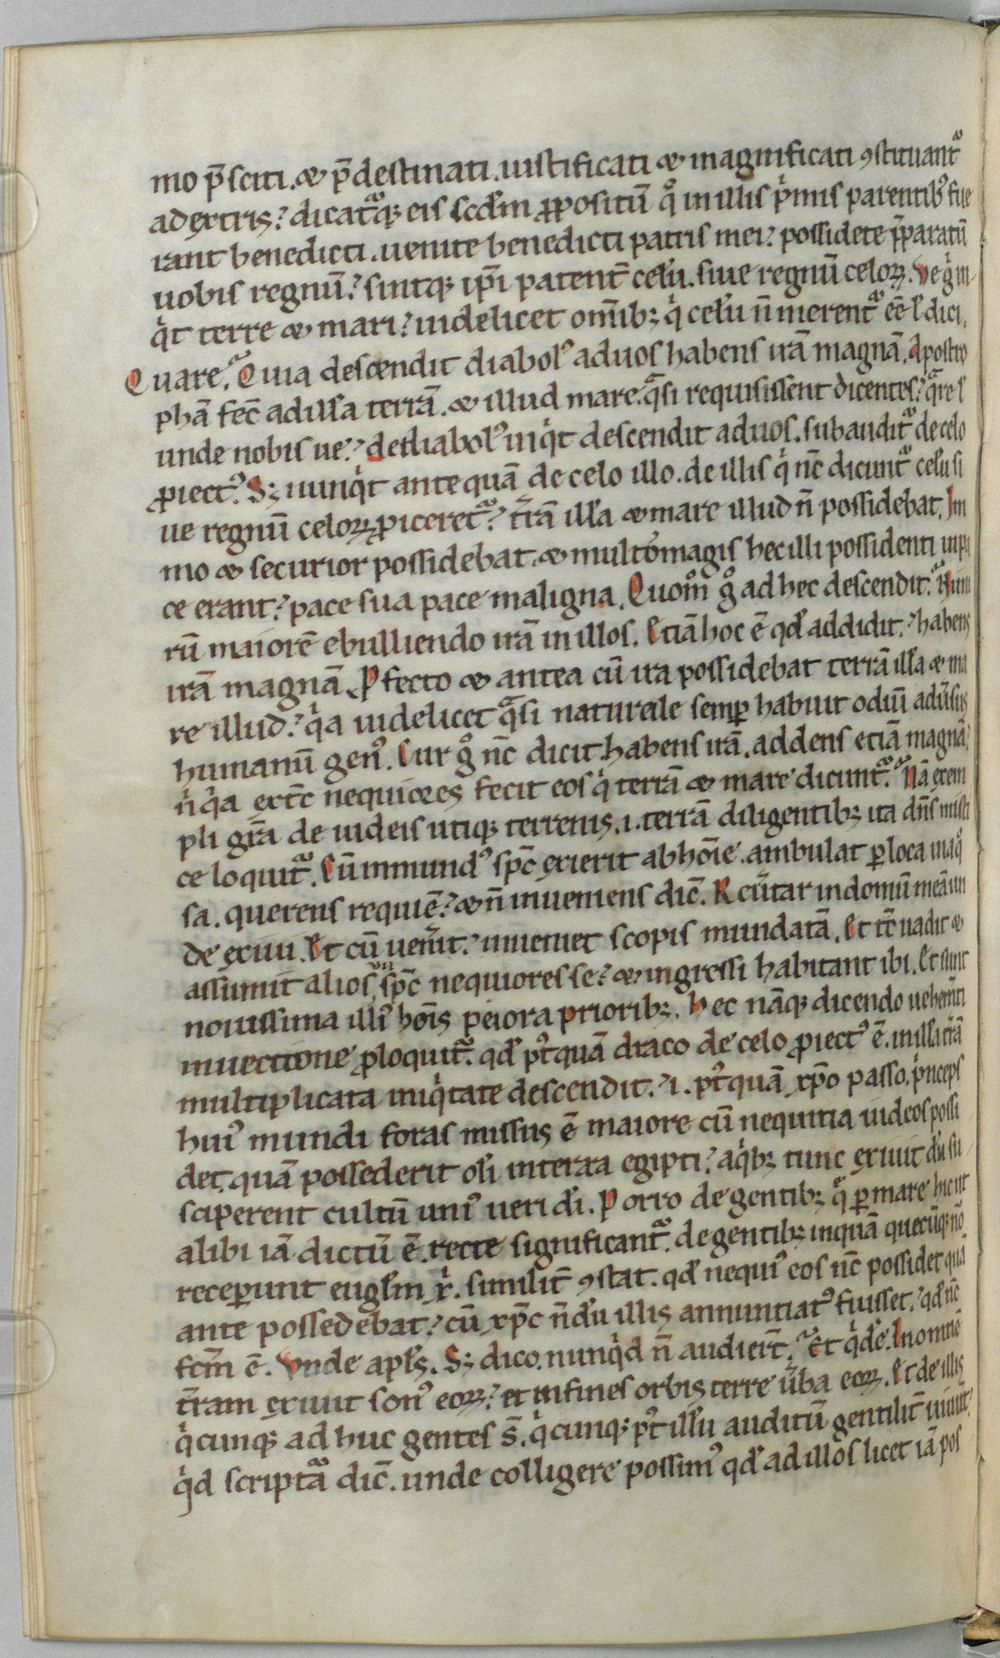 mo p̄sciti. & p̄destinati. iustificati & magnificati ꝯstituant᷑
ad extris? dicat᷑q; eis scdm̄ ꝓpositū qͦ in illis pͥmis parentibꝰ fue
rant benedicti. uenite benedicti patris mei? possidete p̄paratū
uobis regnū? sintq; ip̄i patent̄ celū. siue regnū celoꝝ. Ve gͥ in
qͥt terre & mari? uidelicet omīb; qͥ celū n̄ merent᷑ eē ł dici.
Quare? Quia descendit diabolꝰ ad uos habens irā magnā. Apostro
phā fec̄ ad illa terrā. & illud mare. qͣsi requisissent dicentes? qͣre ł
unde nobis ue? de diabolꝰ inqͥt descendit ad uos. subaudit᷑ de celo
ꝓiectꝰ. S; nunqͥt ante quā de celo illo. de illis qͥ nc̄ dicunt᷑ celū si
ue regnū celoꝝ ꝓiceret᷑? t̄rā illa & mare illud n̄ possidebat. Im
mo & securior possidebat. & multo magis hec illi possidenti in pa
ce erant? pace sua pace maligna. Quom̊ gͦ ad hec descendit? Nimi
rū maiorē ebulliendo irā in illos. Etiā hoc ē qd̄ addidit? habens
irā magnā. Pfecto & antea cū ira possidebat terrā illā & ma
re illud? qͥa uidelicet qͣsi naturale semp̄ habuit odiū adūsus
humanū genꝰ. Cur gͦ nc̄ dicit habens irā. addens etiā magnā?
n̄ qͥa ext̄c nequiores fecit eos qͥ terrā & mare dicunt᷑? Nā exem
pli gr̄a de iudeis utiq; terrenis .i. terrā diligentib; ita dn̄s misti
ce loquit᷑. Cū inmundꝰ spc̄ exierit ab hoīe. ambulat ꝑ loca inaqͦ
sa. querens requiē? & n̄ inueniens dic̄. Reūtar in domū meā un
de exiui. Et cū uen̄it? inueniet scopis mundatā. Et tc̄ uadit &
assumit alios .vii. spc̄ nequiores se? & ingressi habitant ibi. Et sunt
nouissima illiꝰ hoīs peiora priorib;. Hec nāq; dicendo uehementi
inuectione ꝓloquit᷑. qd̄ pꝰtquā draco de celo ꝓiectꝰ ē. in illa t̄rā
multiplicata iniqͥtate descendit? .i. pꝰtquā xp̄o passo. pͥnceps
huiꝰ mundi foras missus ē maiore cū nequitia iudeos possi
det. quā possederit olī in terra egipti? a qͥb; tunc exiuit dū su
sciperent cultū uniꝰ ueri dī. Porro de gentib; qͤ ꝑ mare hic ut
alibi iā dictū ē. recte significant᷑. de gentib; inquā quecūq; nō
receperunt eugłm xͥ. similit̄ ꝯstat. qd̄ nequiꝰ eos nc̄ possidet quā
ante possedebat? cū xpc̄ n̄dū illis annuntiatꝰ fuisset? qd̄ nc̄
fcm̄ ē. Vnde apłs. S; dico. nunqͥd n̄ audiert̄? Et qͥdē. In omnē
t̄ram exiuit sonꝰ eoꝝ? et in fines orbis terre ūba eoꝝ. Et de illis
qͥcunq; adhuc gentes s̄. qͥcunq; pꝰt illū auditū gentilit̄ uiuunt?
qͥd script᷑a dic̄. unde colligere possimꝰ qd̄ ad illos licet iā pos